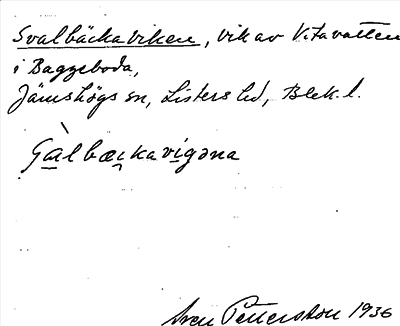 Svalbäckaviken, vik av V. tavatten
i Baggeboda,
Jämshögs sn, Listers hd, Blek. l.
Sven Pettersson 1936